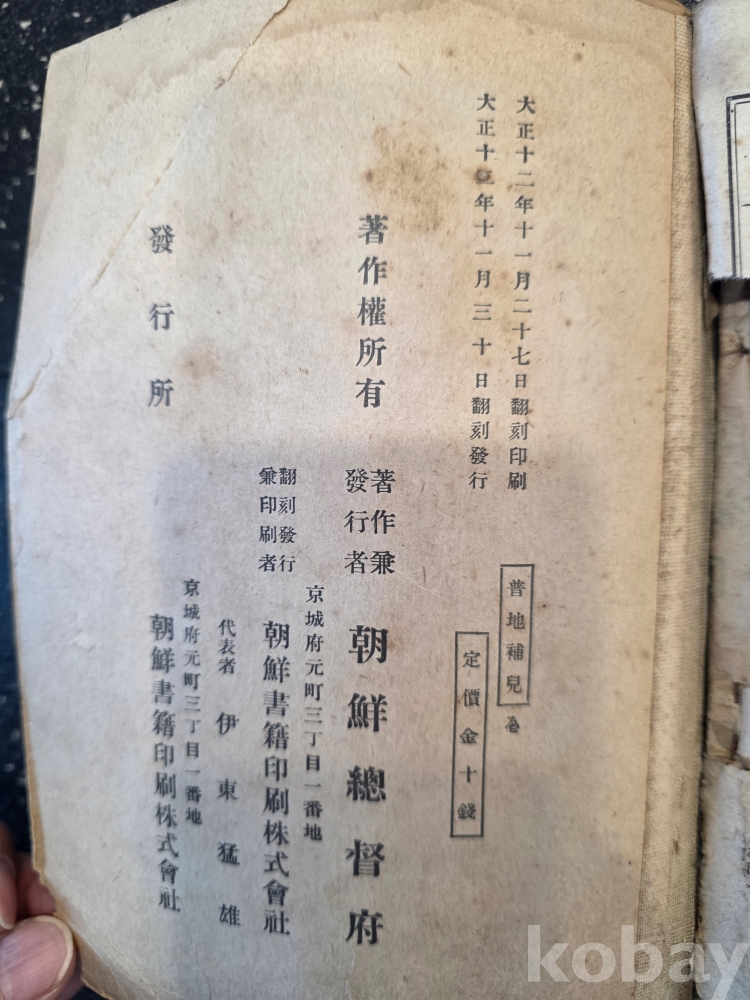 大正十二年十一月二十七日翻刻印刷
大正十二年十一月三十日翻刻發行
普地補兒
定價金十錢
著作權所有
著作兼
發行者
朝鮮總督府
京城府元町三丁目一番地
翻刻發行
兼印刷者
朝鮮書籍印刷株式會社
代表者 伊東猛雄
京城府元町三丁目一番地
發行所
朝鮮書籍印刷株式會社
kobay